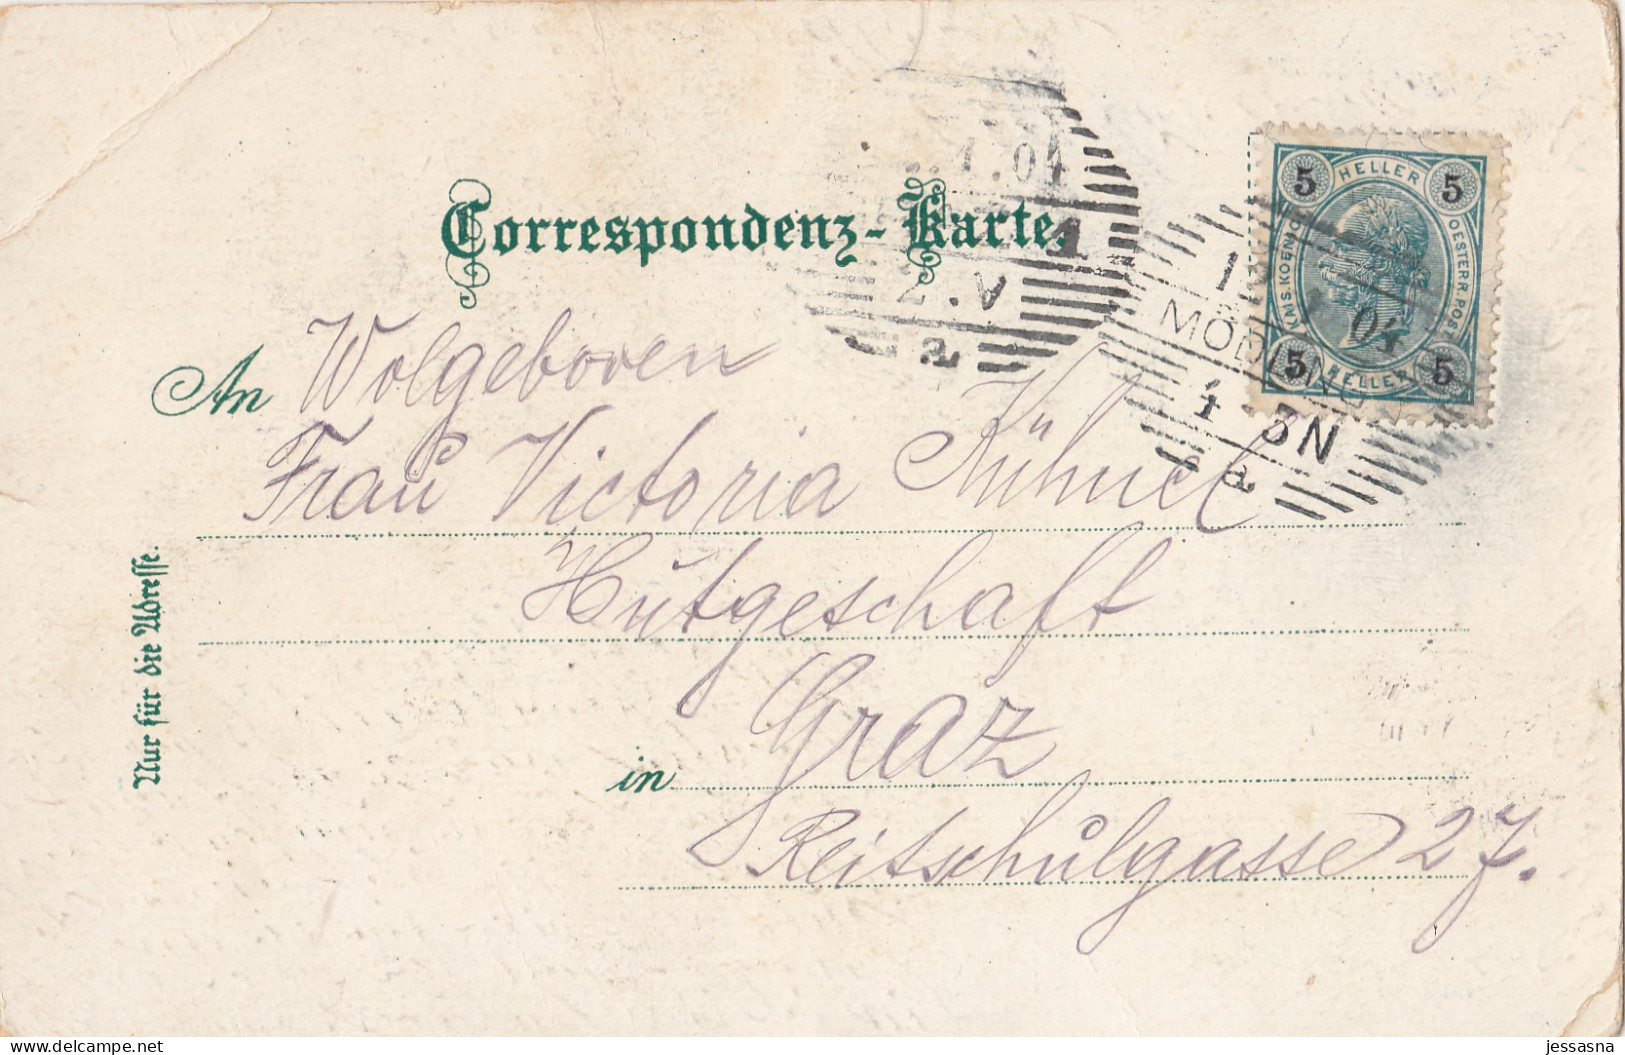 Correspondenz-Karte.
5 HELLER 5
KAIS. KOENIG. OESTERR. POST
5 HELLER 5
MÖDLING
04
1 3N
a
.1.04
2.V
a
An Wolgeboren
Frau Victoria Kühnel
Hutgeschaft
in Graz
Reitschulgasse 27.
Nur für die Adresse.
jessasna